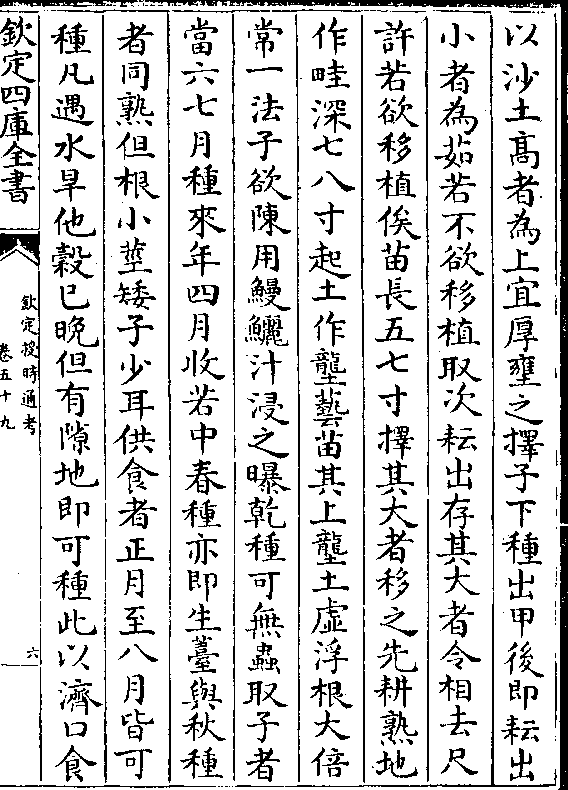 以沙土髙者為上宜厚壅之擇子下種出甲後即耘出
小者為茹若不欲移植取次耘出存其大者令相去尺
許若欲移植俟苗長五七寸擇其大者移之先耕熟地
作畦深七八寸起土作壟藝苗其上壟土虚浮根大倍
常一法子欲陳用鰻鱺汁浸之曝乾種可無蟲取子者
當六七月種來年四月收若中春種亦即生薹與秋種
者同熟但根小莖矮子少耳供食者正月至八月皆可
種凡遇水旱他穀已晩但有隙地即可種此以濟口食
欽定四庫全書
欽定授時通考
卷五十九
六